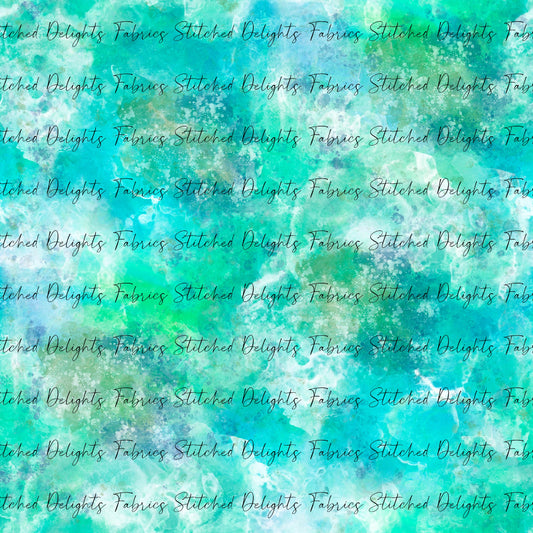 tched Delights Fabrics Stitched Delights Fabrics Stitched Delights Fab
tched Delights Fabrics Stitched Delights Fabrics Stitched Delights Fab
tched Delights Fabrics Stitched Delights Fabrics Stitched Delights Fab
tched Delights Fabrics Stitched Delights Fabrics Stitched Delights Fab
tched Delights Fabrics Stitched Delights Fabrics Stitched Delights Fab
tched Delights Fabrics Stitched Delights Fabrics Stitched Delights Fab
tched Delights Fabrics Stitched Delights Fabrics Stitched Delights Fab
tched Delights Fabrics Stitched Delights Fabrics Stitched Delights Fab
tched Delights Fabrics Stitched Delights Fabrics Stitched Delights Fab
tched Delights Fabrics Stitched Delights Fabrics Stitched Delights Fab